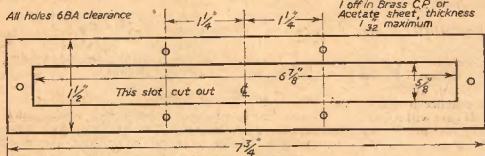 All holes 6BA clearance
1 1/4" 1 1/4"
1 off in Brass C.P. or
Acetate sheet, thickness
1/32" maximum
6 7/8"
1 1/2"
This slot cut out
℄
5/8"
7 3/4"